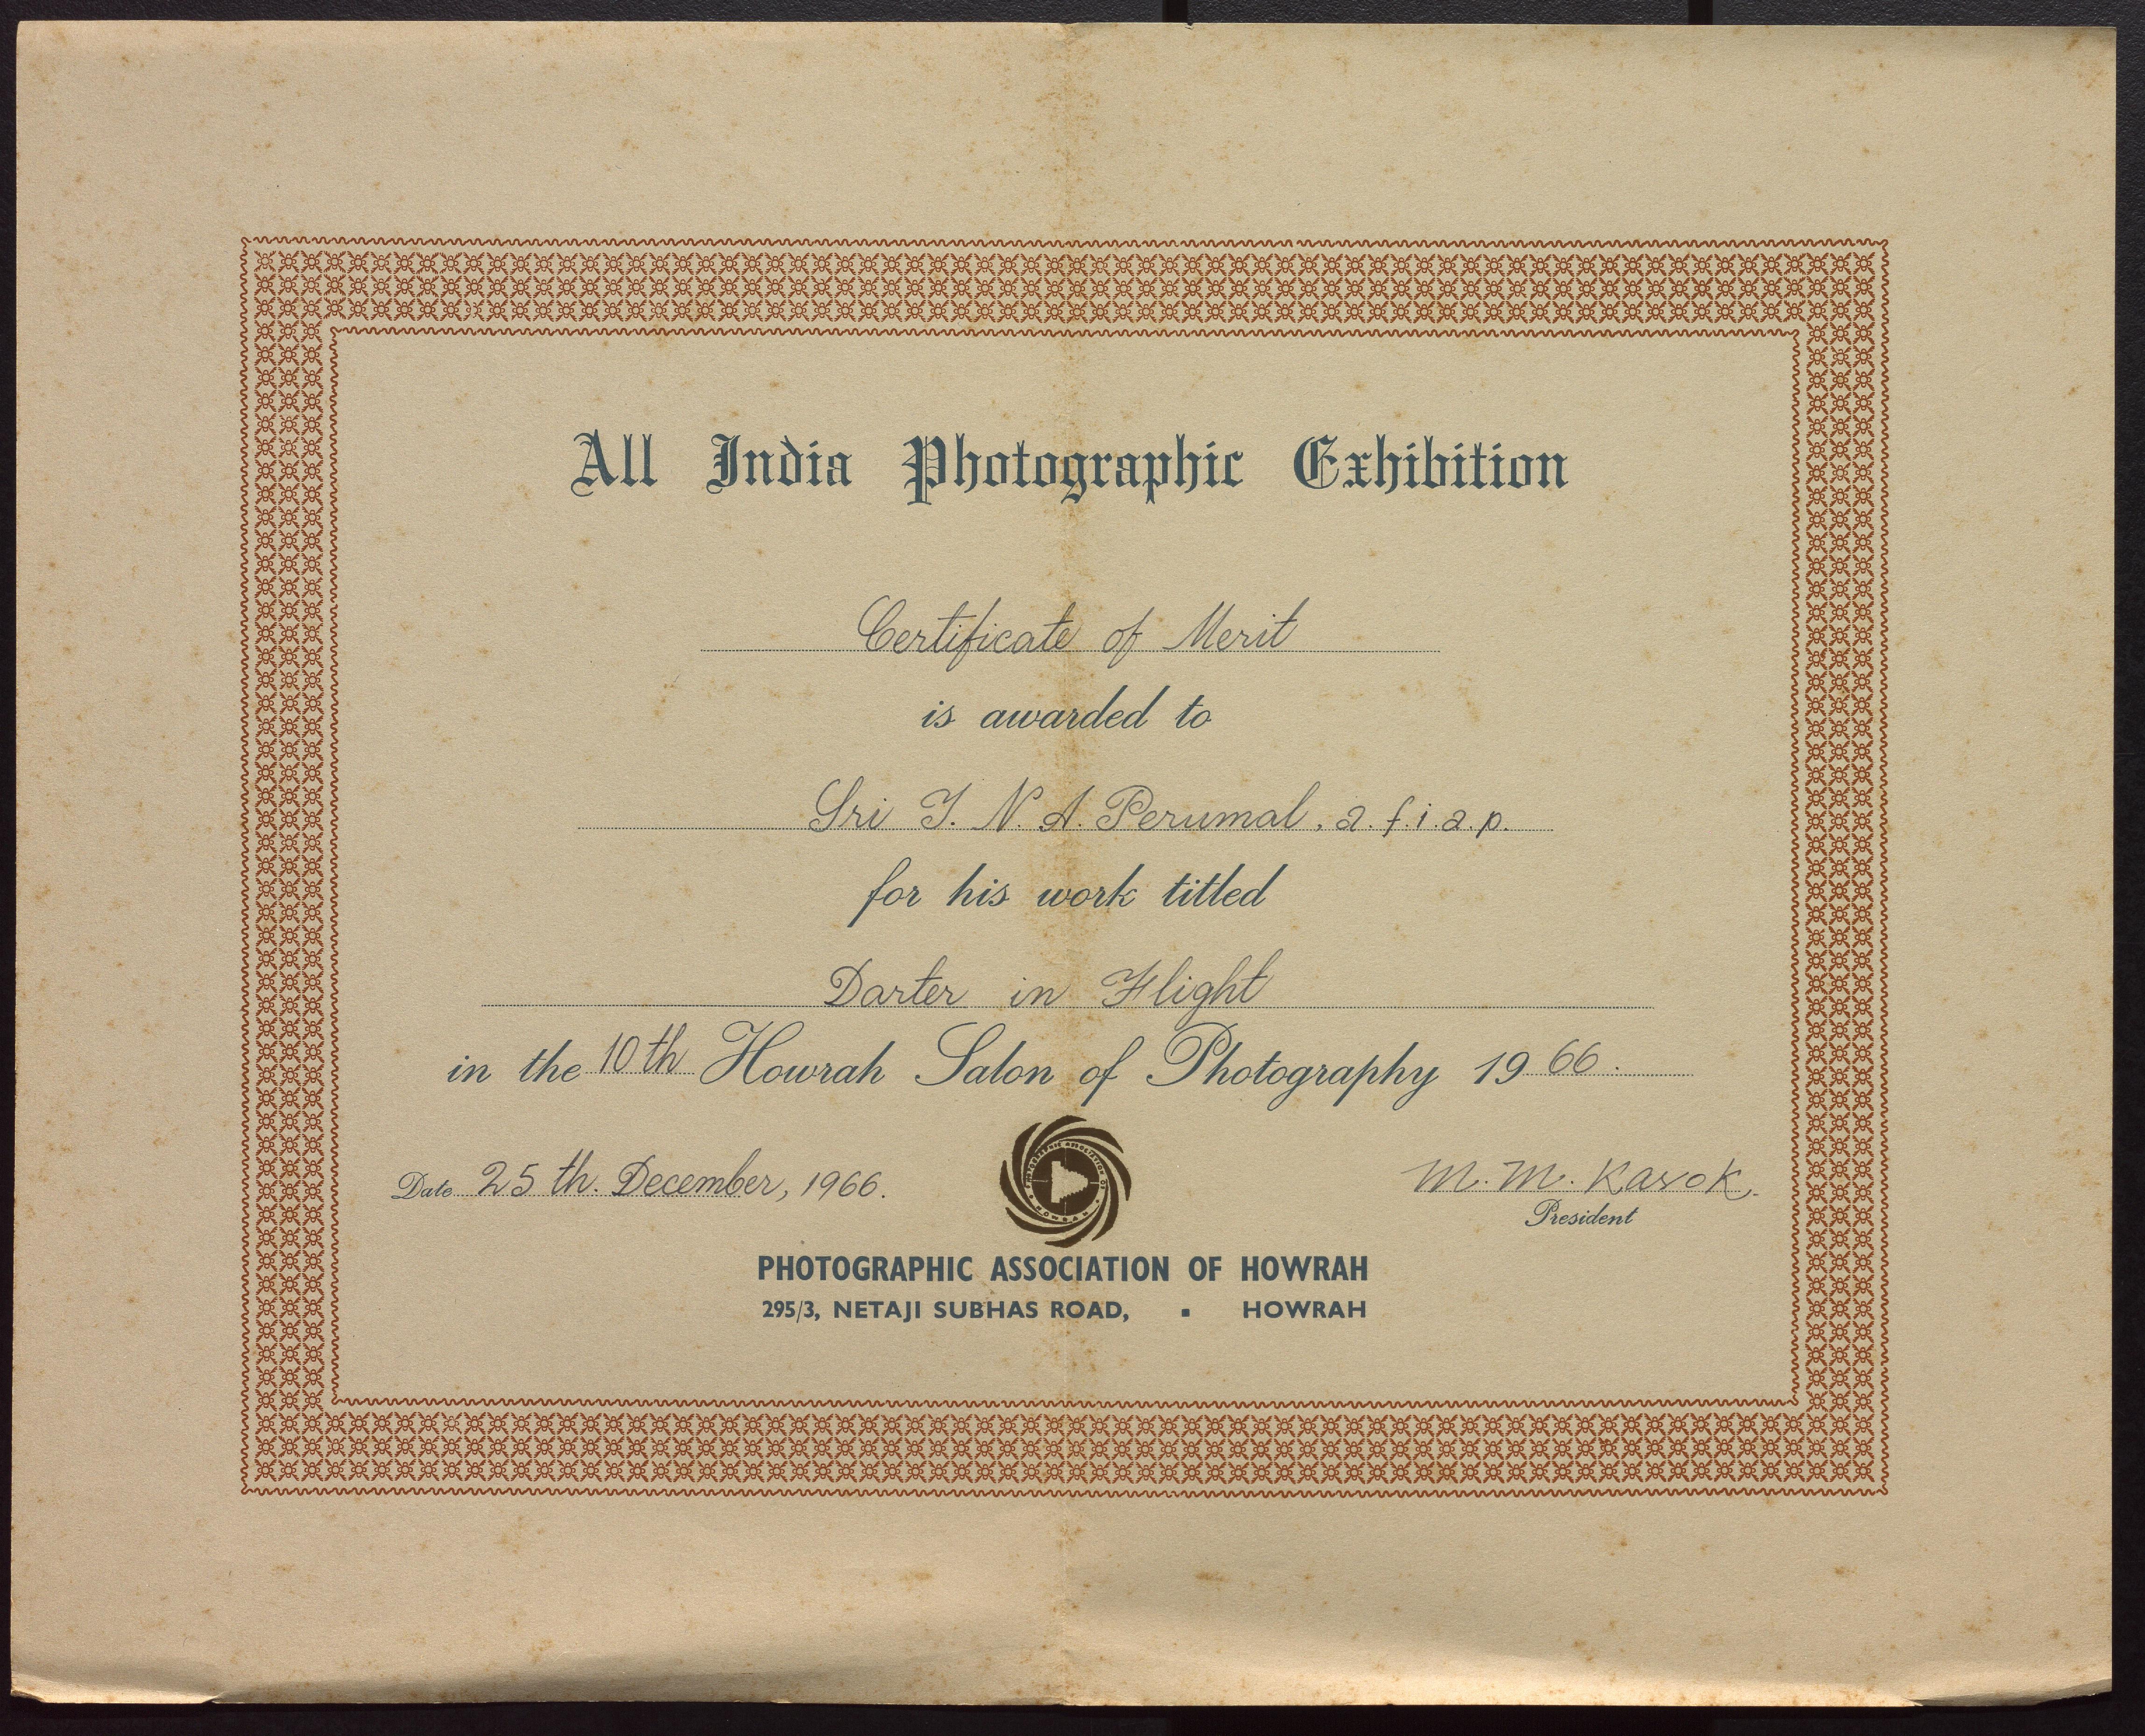 All India Photographic Exhibition
Certificate of Merit
is awarded to
Sri T. N. A. Perumal, a.f.i.a.p.
for his work titled
Darter in Flight
in the 10th Howrah Salon of Photography 1966.
Date 25th. December, 1966.
M. M. Kayok.
President
PHOTOGRAPHIC ASSOCIATION OF HOWRAH
PHOTOGRAPHIC ASSOCIATION OF HOWRAH
295/3, NETAJI SUBHAS ROAD, ▪ HOWRAH